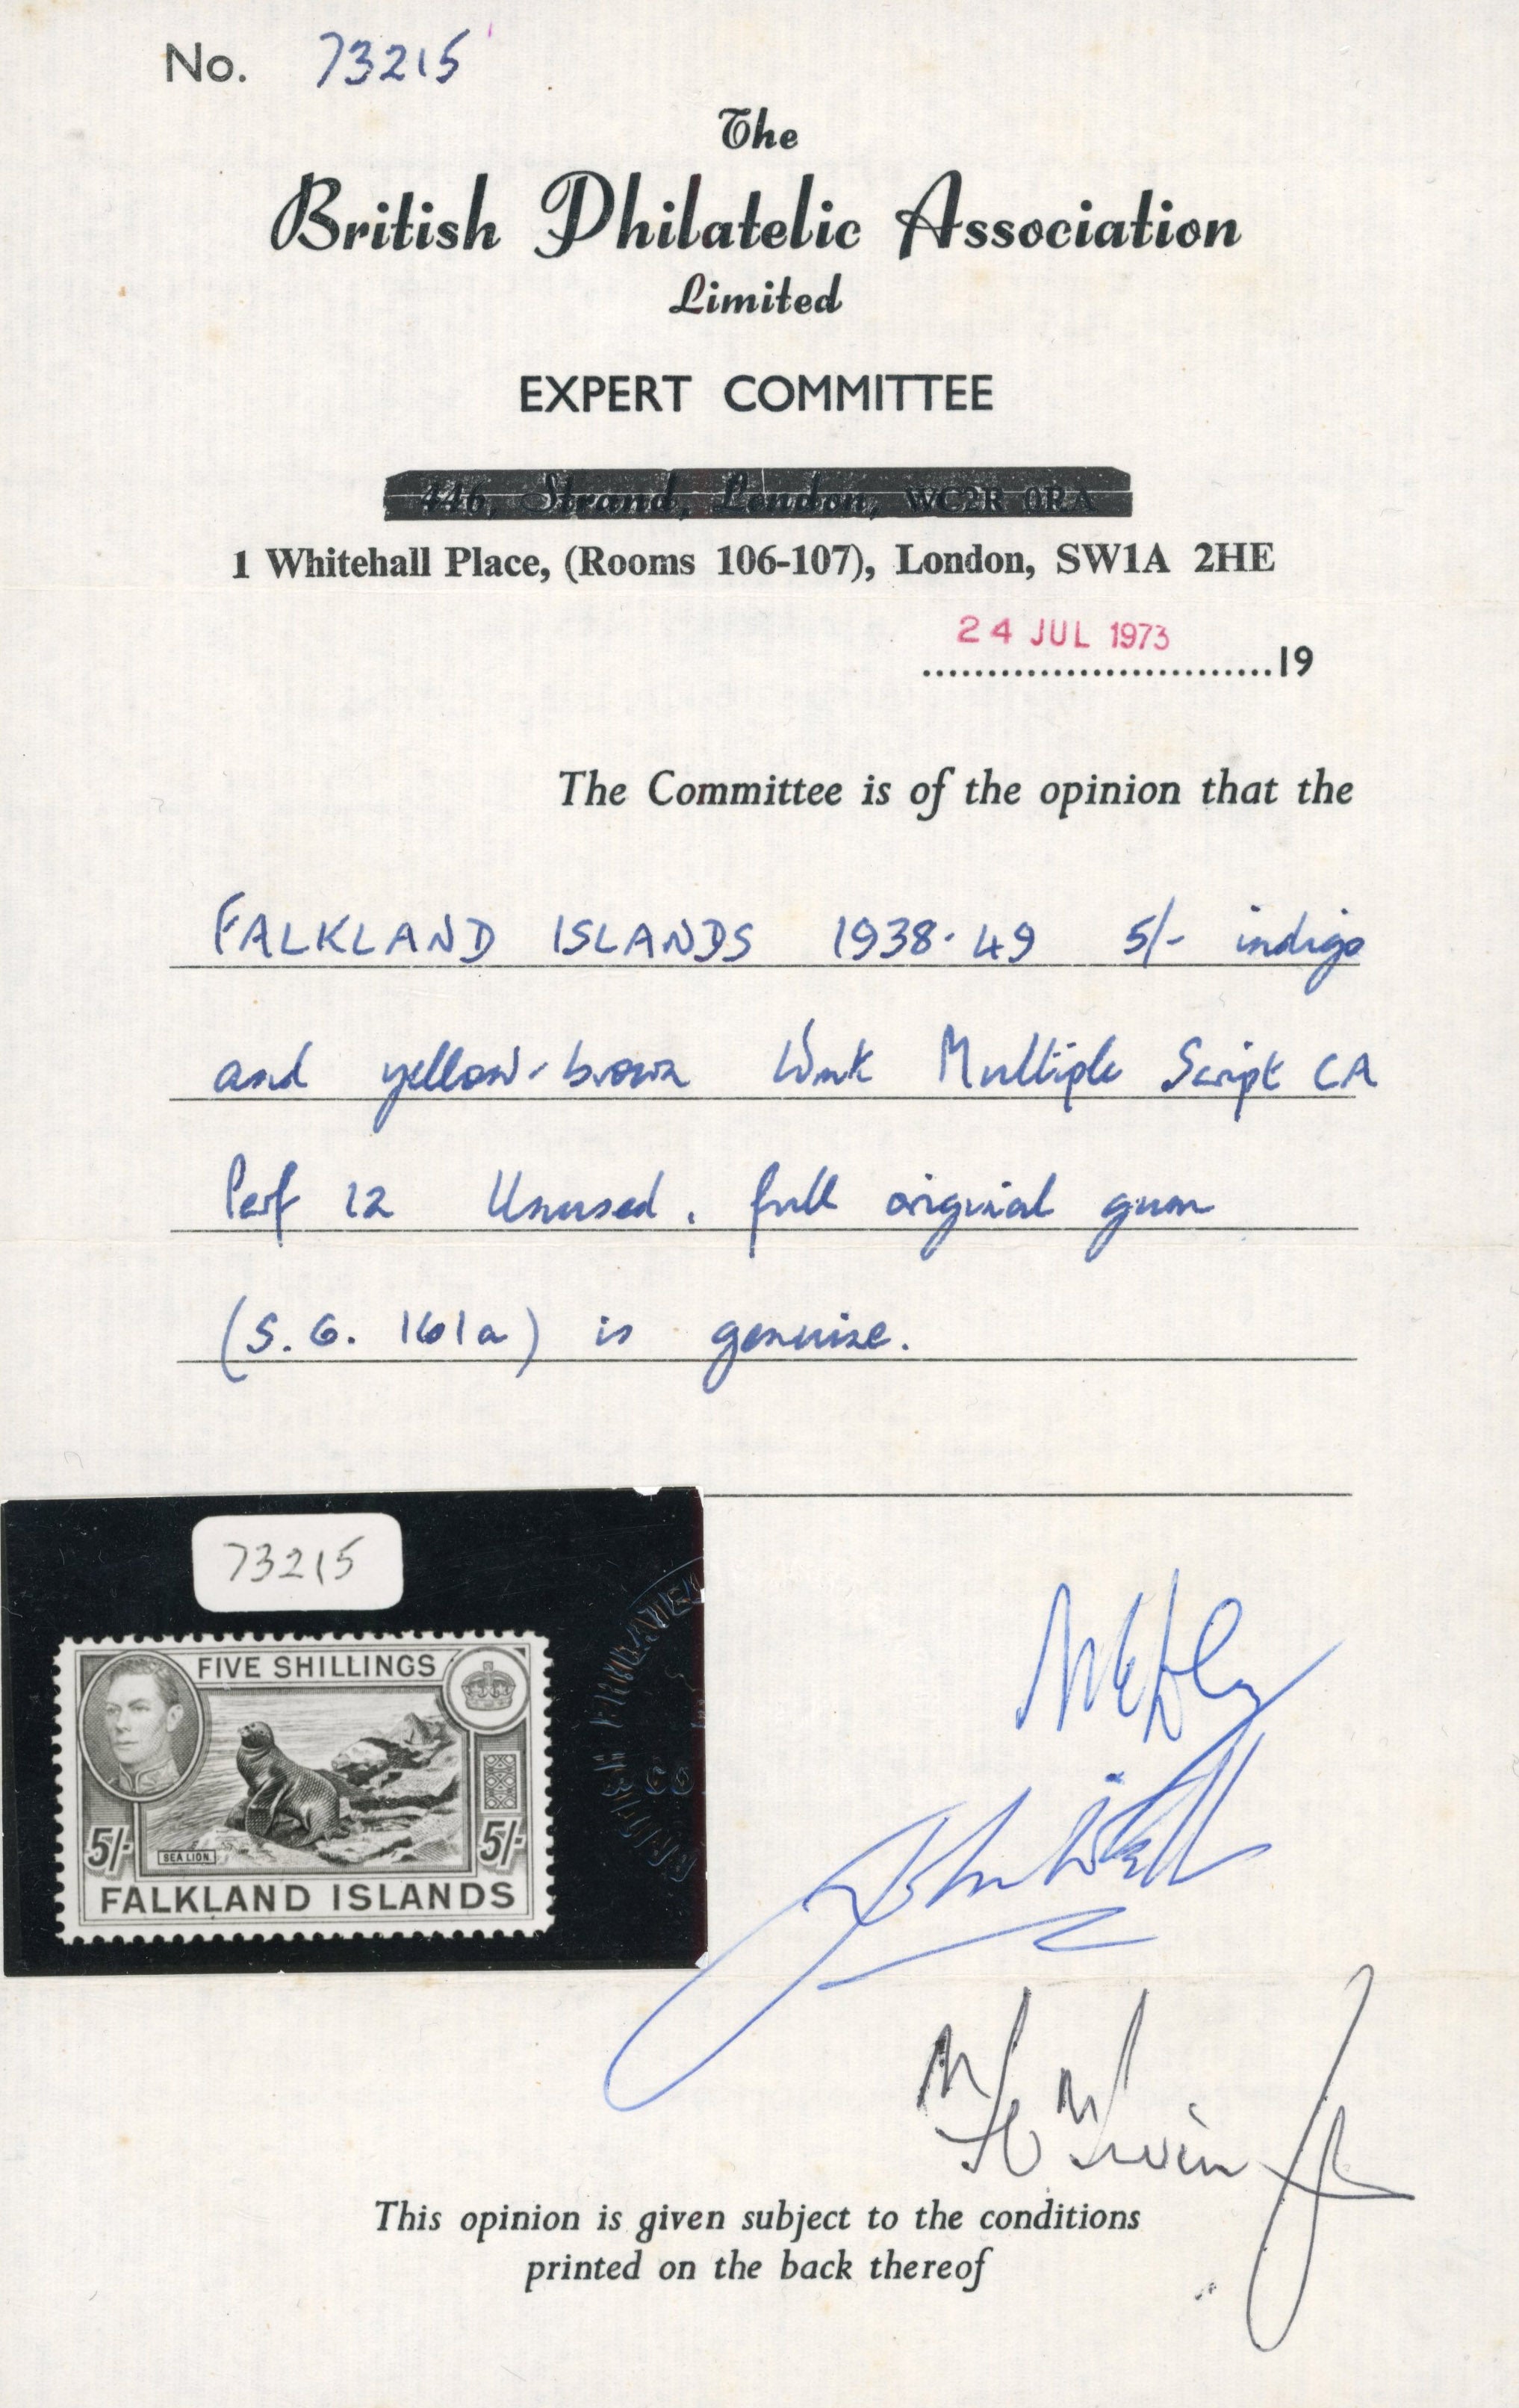 No. 73215
The
British Philatelic Association
Limited
EXPERT COMMITTEE
446, Strand, London, WC2R 0RA
1 Whitehall Place, (Rooms 106-107), London, SW1A 2HE
24 JUL 1973
..............................19
The Committee is of the opinion that the
FALKLAND ISLANDS 1938-49 5/- indigo
and yellow-brown Wmk Multiple Script CA
Perf 12 Unused, full original gum
(S.G. 161a) is genuine.
73215
FIVE SHILLINGS
5/- SEA LION 5/-
FALKLAND ISLANDS
This opinion is given subject to the conditions
printed on the back thereof